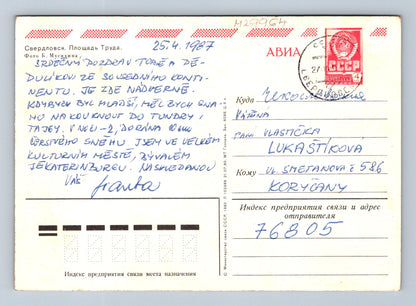 M29964
Свердловск. Площадь Труда.
Фото Б. Мусихина
25.4. 1987
SRDEČNÝ POZDRAV TOBĚ A DĚ-
DULÍKOVI ZE SOUSEDNÍHO KONTI-
NENTU. JE ZDE NÁDHERNĚ.
KDYBYCH BYL MLADŠÍ, MĚL BYCH SNA-
HU NAKOUKNOUT DO TUNDRY I
TAJGY.
ČERSTVÉHO SNĚHU. JSEM VE VELKÉM
KULTURNÍM MĚSTĚ, BÝVALÉM
JEKATERINBURGU. NASHLEDANOU
VÁŠ
АВИА
СССР
Куда
PANÍ VLASTIČKA
LUKAŠTÍKOVA
Кому UL. SMETANOVA č 586
KORYČANY
Индекс предприятия связи и адрес
отправителя
76805
Индекс предприятия связи места назначения